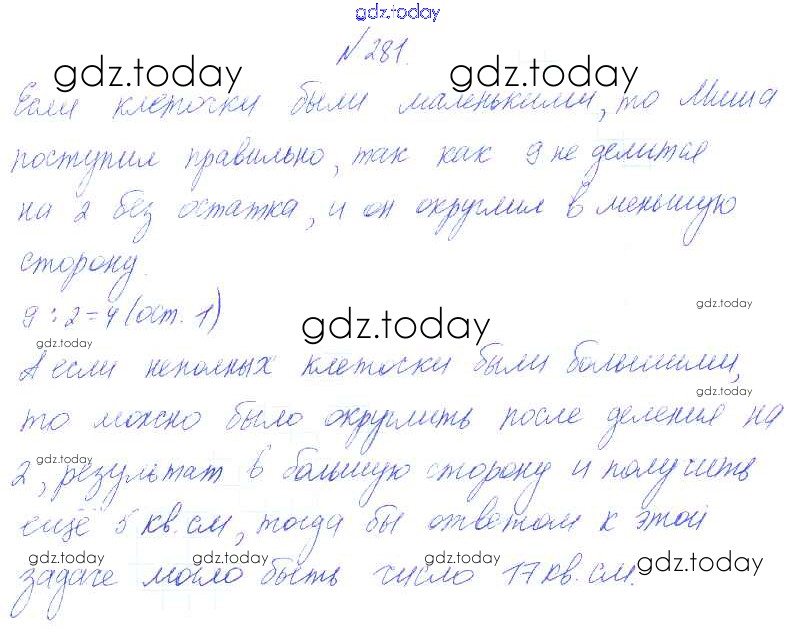 gdz.today
№ 281.
gdz.today gdz.today
Если клеточки были маленькими, то Миша
поступил правильно, так как 9 не делится
на 2 без остатка, и он округлил в меньшую
сторону.
9 : 2 = 4 (ост. 1)
gdz.today
gdz.today
gdz.today
А если неполных клеточки были большими,
gdz.today
то можно было округлить после деления на
gdz.today
2, результат в большую сторону и получить
ещё 5 кв. см, тогда бы ответом к этой
gdz.today gdz.today gdz.today gdz.today
задаче могло быть число 17 кв. см.